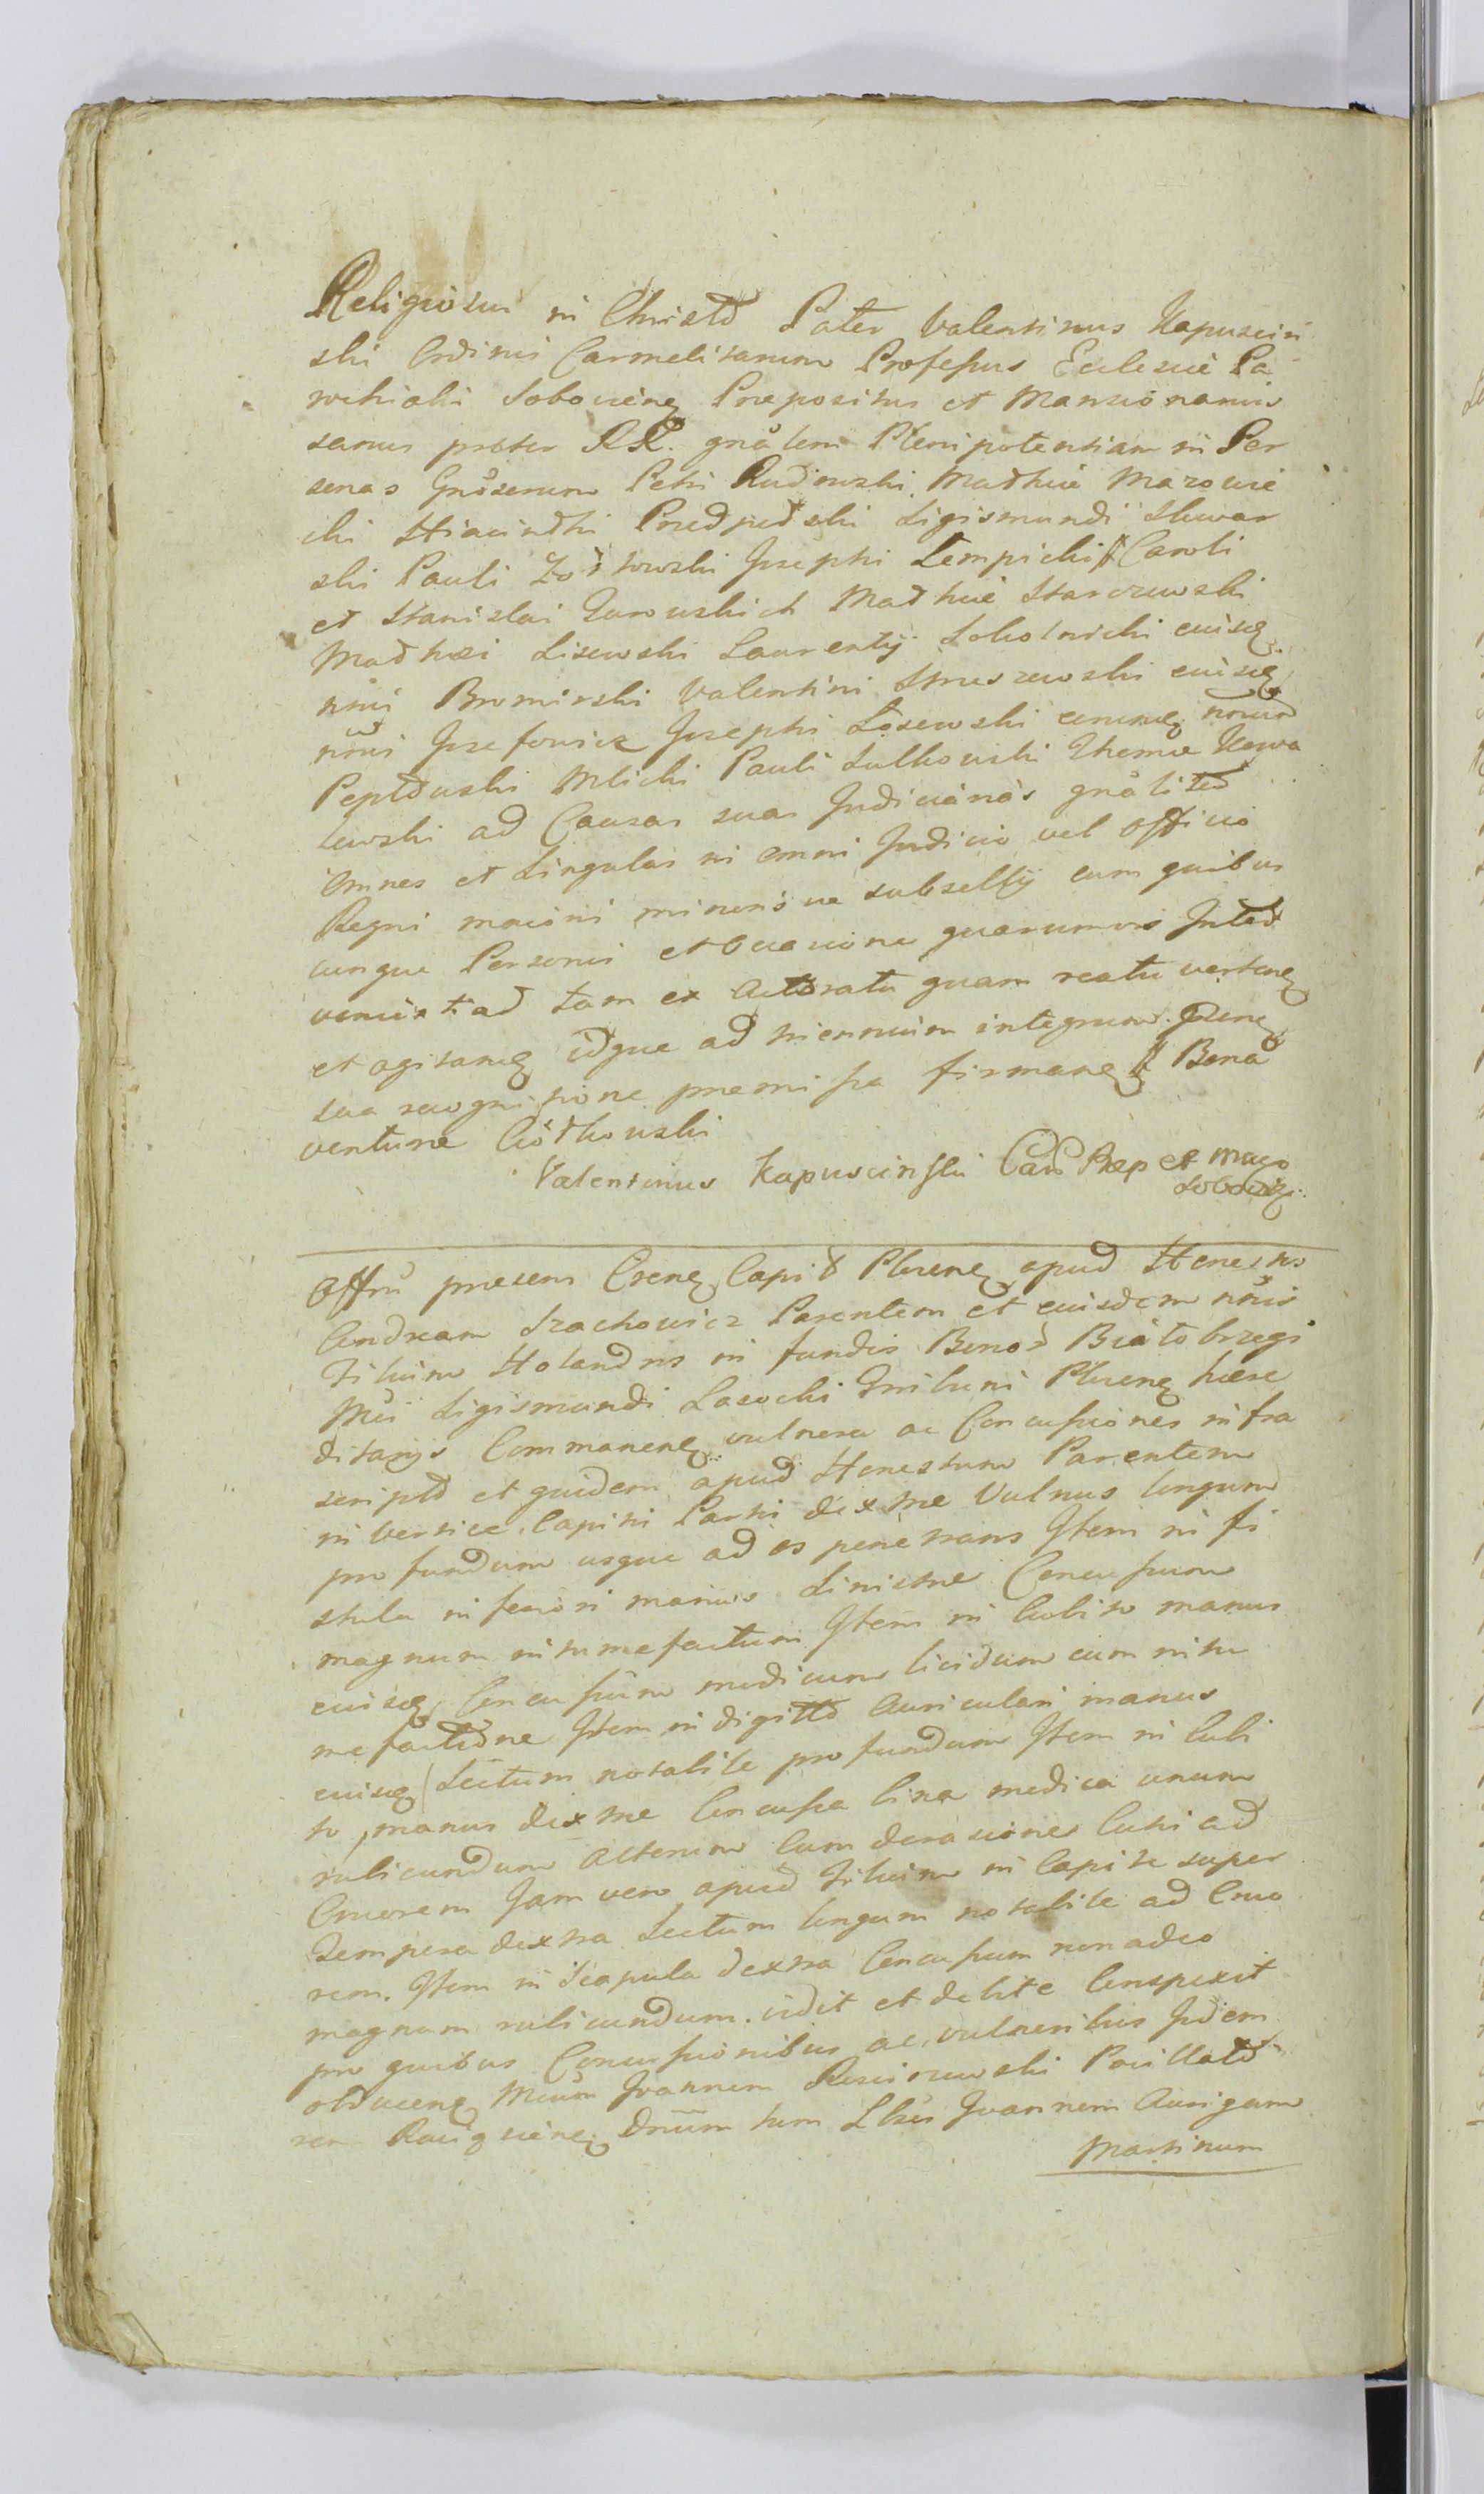 Religiosus in Christo Pater Valentinus Kapuscin
ski Ordinis Carmelitarum Professus Ecclesiae Pa
rochialis Sobocien Praepositus et Mansionarius
tanus praeter RR. gnalem Plenipotentiam in Per
sonas Gnosorum Petri Rudowski Mathiae Mazowie
cki Hiacinthi Przedpelski Sigismundi Skwar
ski Pauli Zoltowski Josephi Lempicki Caroli
et Stanislai Gurowskich Mathiae Starczewski
Mathaei Lisewski Laurentij Sokolnicki eiusdę
nnis Bromirski Valentini Struszewski eiusdę
nnis Jozefowicz Josephi Losewski eiusdę nnis
Peptowski Mlicki Pauli Sulkowski Thomae Kowa
lewski ad Causas suas Judiciarias gnaliter
Omnes et Singulas in omni Judicio vel Officio
Regni maioris minorisve subsellij cum quibus
cunque Personis et Occasione quarumvis Inter
venient ad tam ex Actoratu quam reatu verten
et agitan idque ad triennium integrum
sua recognitione praemissa firman Bona
venturae Ciołkowski
Valentinus Kapuscinski Car Praep et Man
Soboci

Offm praesens Crene Capit Plocen apud Honestos
Andream Szachowicz Parentem et eiusdem nnis
Filium Holandros in fundis Bonor Białobrzegi
Mci Sigismundi Lasocki Tribuni Plocen haere
ditarijs Commanen vulnera ac Concussiones infra
scripto et quidem apud Honestum Parentem
in vertice Capitis Partis dextrae Vulnus longum
profundum usque ad os penetrans Item in fi
stula inferiori manus Sinistrae Concussum
magnum intumefactum Item in Cubito manus
eiusdę Concussum modicum lividum cum intu
mefactione Item in digitto Auriculari manus
eiusdę Sectum notabile profundum Item in Cubi
to manus dextrae Concussa bina modica unum
rubicundum alterum Cum derasione Cutis ad
Cruorem Jam vero apud Filium in Capite super
Tempora dextra Sectum longum notabile ad Cruo
rem. Item in Scapula dextra Concussum non adeo
magnum rubicundum. vidit et debite Conspexit
pro quibus Concussionibus ac vulneribus Idem
obducen Mcum Joannem Rosciszewski Pocillato
rem Raciązien Dnum tum Lbris Joannem Aurigam
Martinum